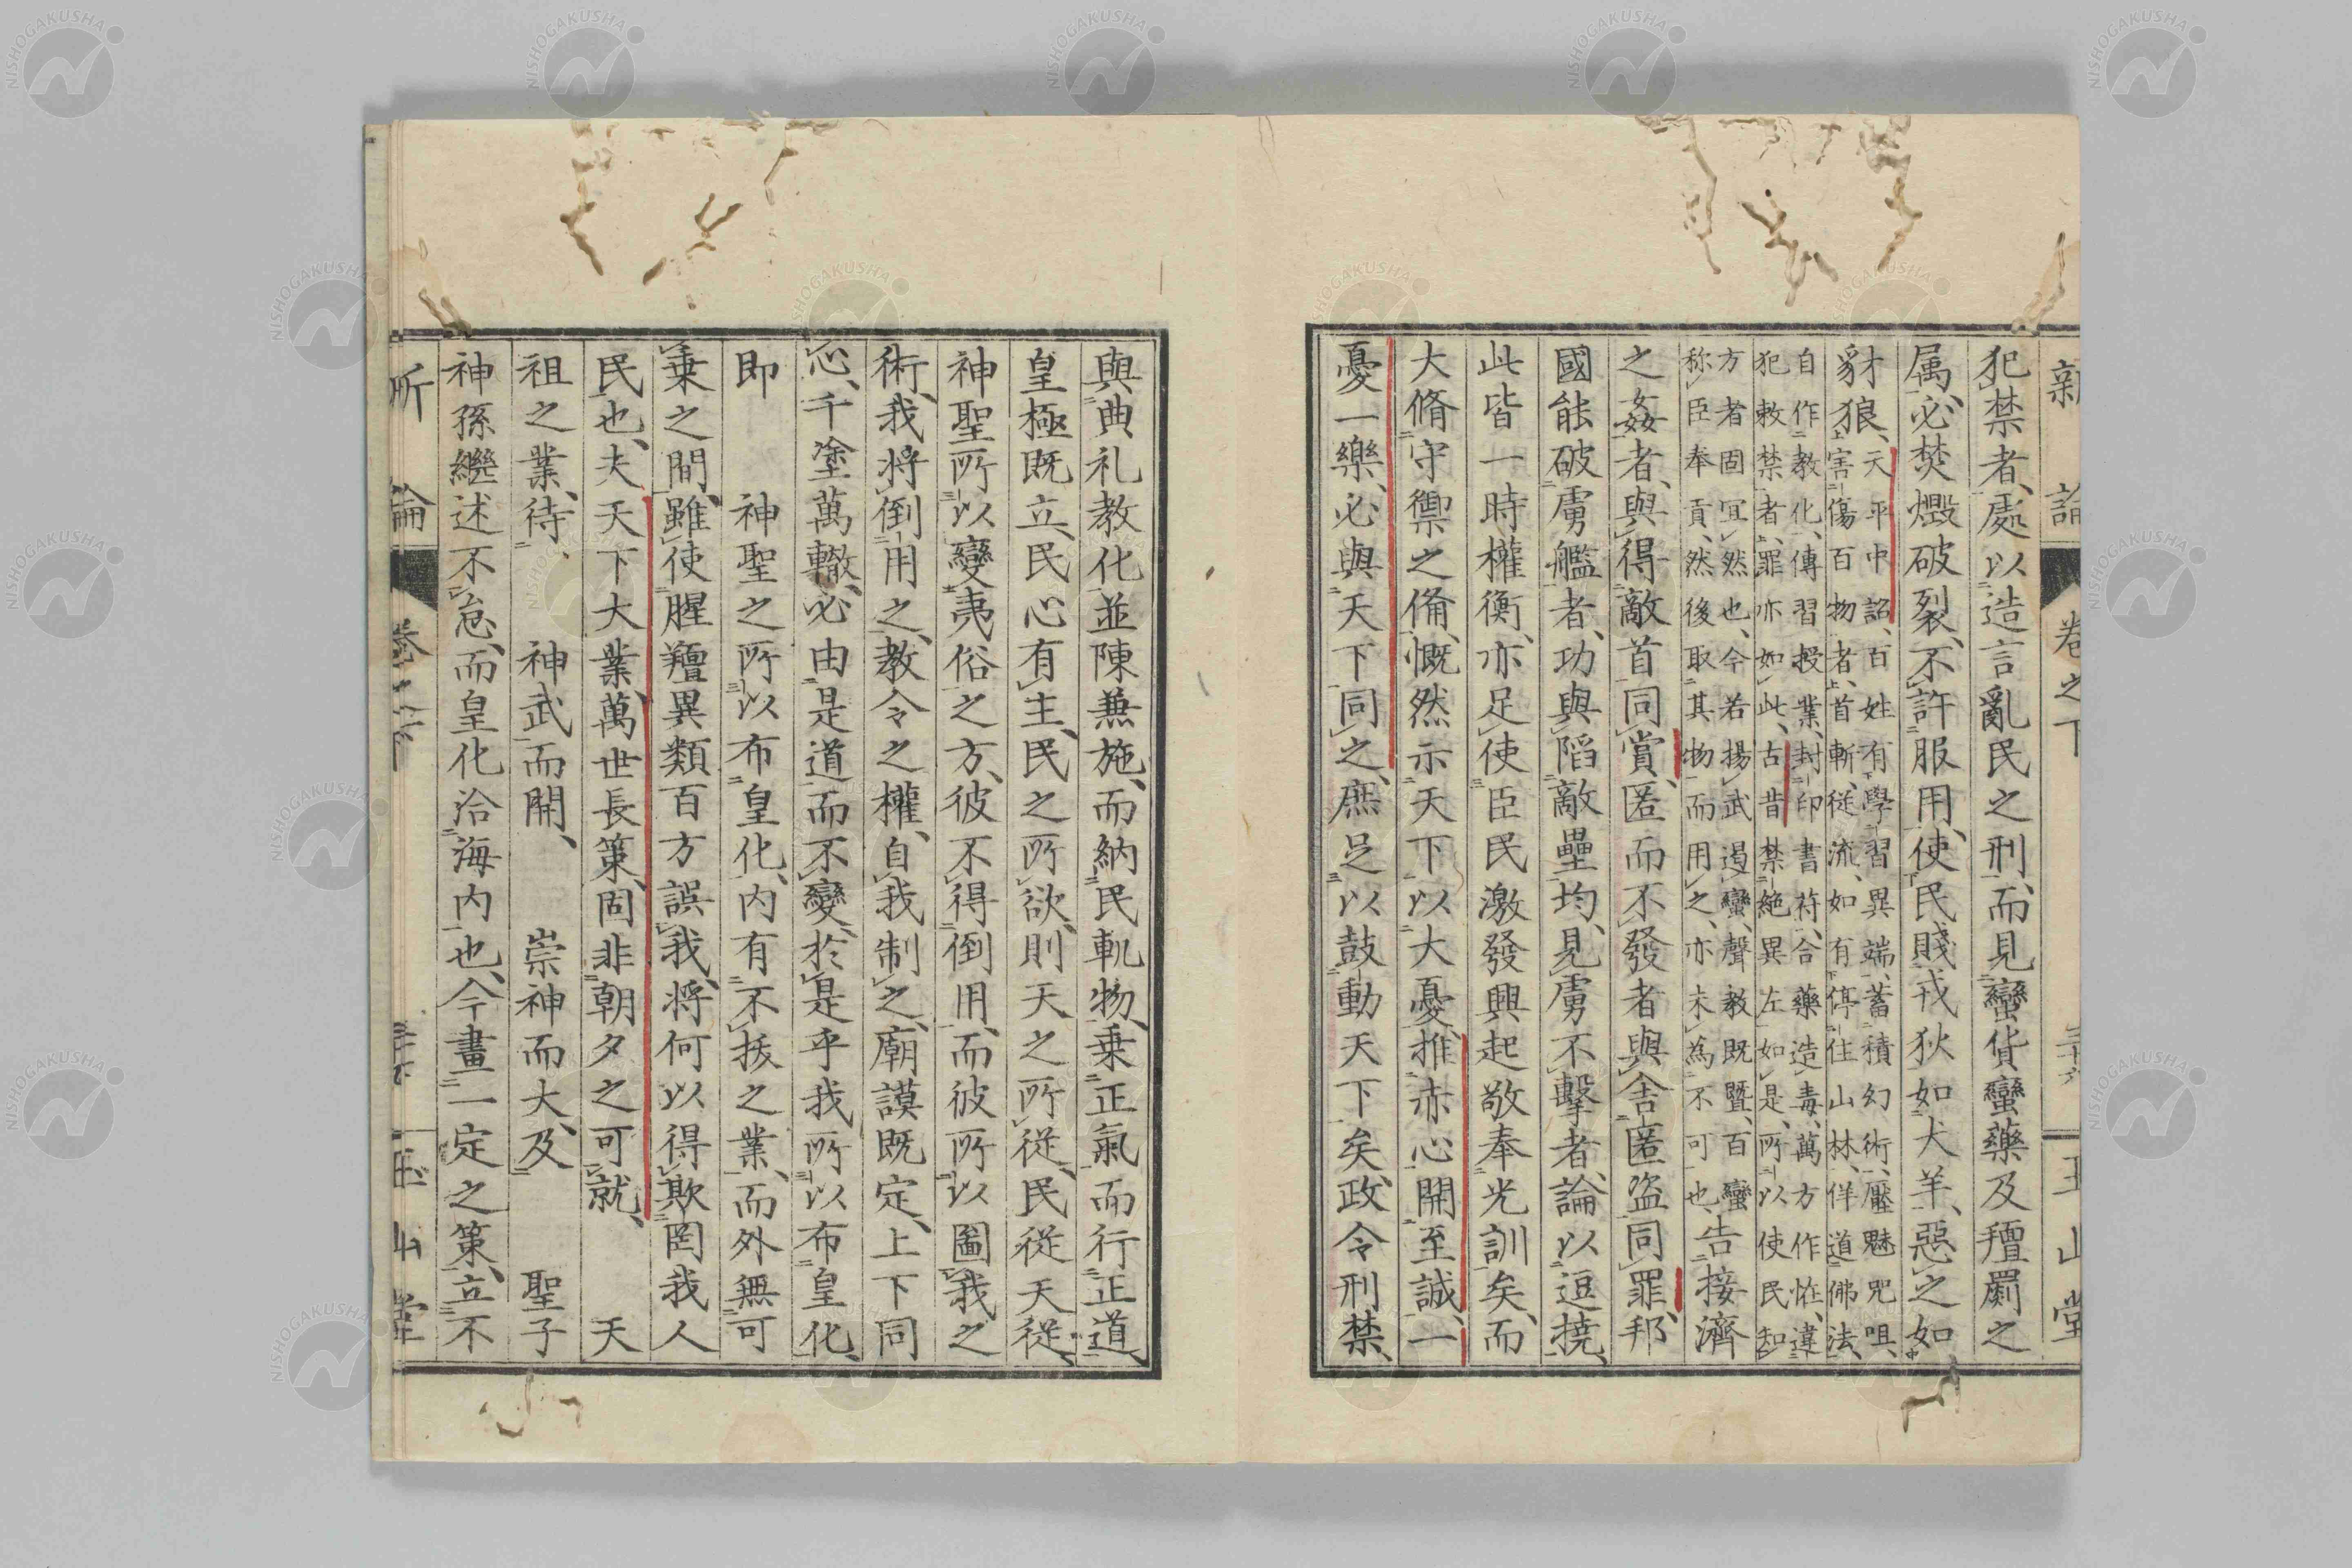 新論 卷之下 三十六 玉山堂
犯禁者、處以造言亂民之刑、而見蠻貨蠻藥及氊罽之
属、必焚燬破裂、不許服用、使民賤戎狄如犬羊、惡之如
豺狼、天平中詔、百姓有學習異端、蓄積幻術、壓魅咒咀、
害傷百物者、首斬、従流、如有停住山林、佯道佛法、
自作教化、傳習授業、封印書符、合藥造毒、萬方作怪、違
犯敕禁者、罪亦如此、古昔禁絶異左如是、所以使民知
方者固宜然也、今若揚武遏蠻、聲教既曁、百蠻
称臣奉貢、然後取其物而用之、亦未為不可也、告接濟
之姦者、與得敵首同賞、匿而不發者與舍匿盗同罪、邦
國能破虜艦者、功與陷敵壘均、見虜不擊者、論以逗撓、
此皆一時權衡、亦足使臣民激發興起敬奉光訓矣、而
大脩守禦之俻、慨然示天下以大憂、推赤心開至誠、一
憂一樂、必與天下同之、庶足以鼓動天下矣、政令刑禁、
與典礼教化、並陳兼施、而納民軌物、乗正氣而行正道、
皇極既立、民心有主、民之所欲、則天之所従、民従天従、
神聖所以變夷俗之方、彼不得倒用、而彼所以圖我之
術、我将倒用之、教令之權、自我制之、廟謨既定、上下同
心、千塗萬轍、必由是道而不變、於是乎我所以布皇化、
即 神聖之所以布皇化、内有不拔之業、而外無可
乗之間、雖使腥羶異類百方誤我、将何以得欺罔我人
民也、夫天下大業、萬世長策、固非朝夕之可就、 天
祖之業、待 神武而開、 崇神而大、及 聖子
神孫繼述不怠、而皇化洽海内也、今畫一定之策、立不
所論 卷之下 玉山堂